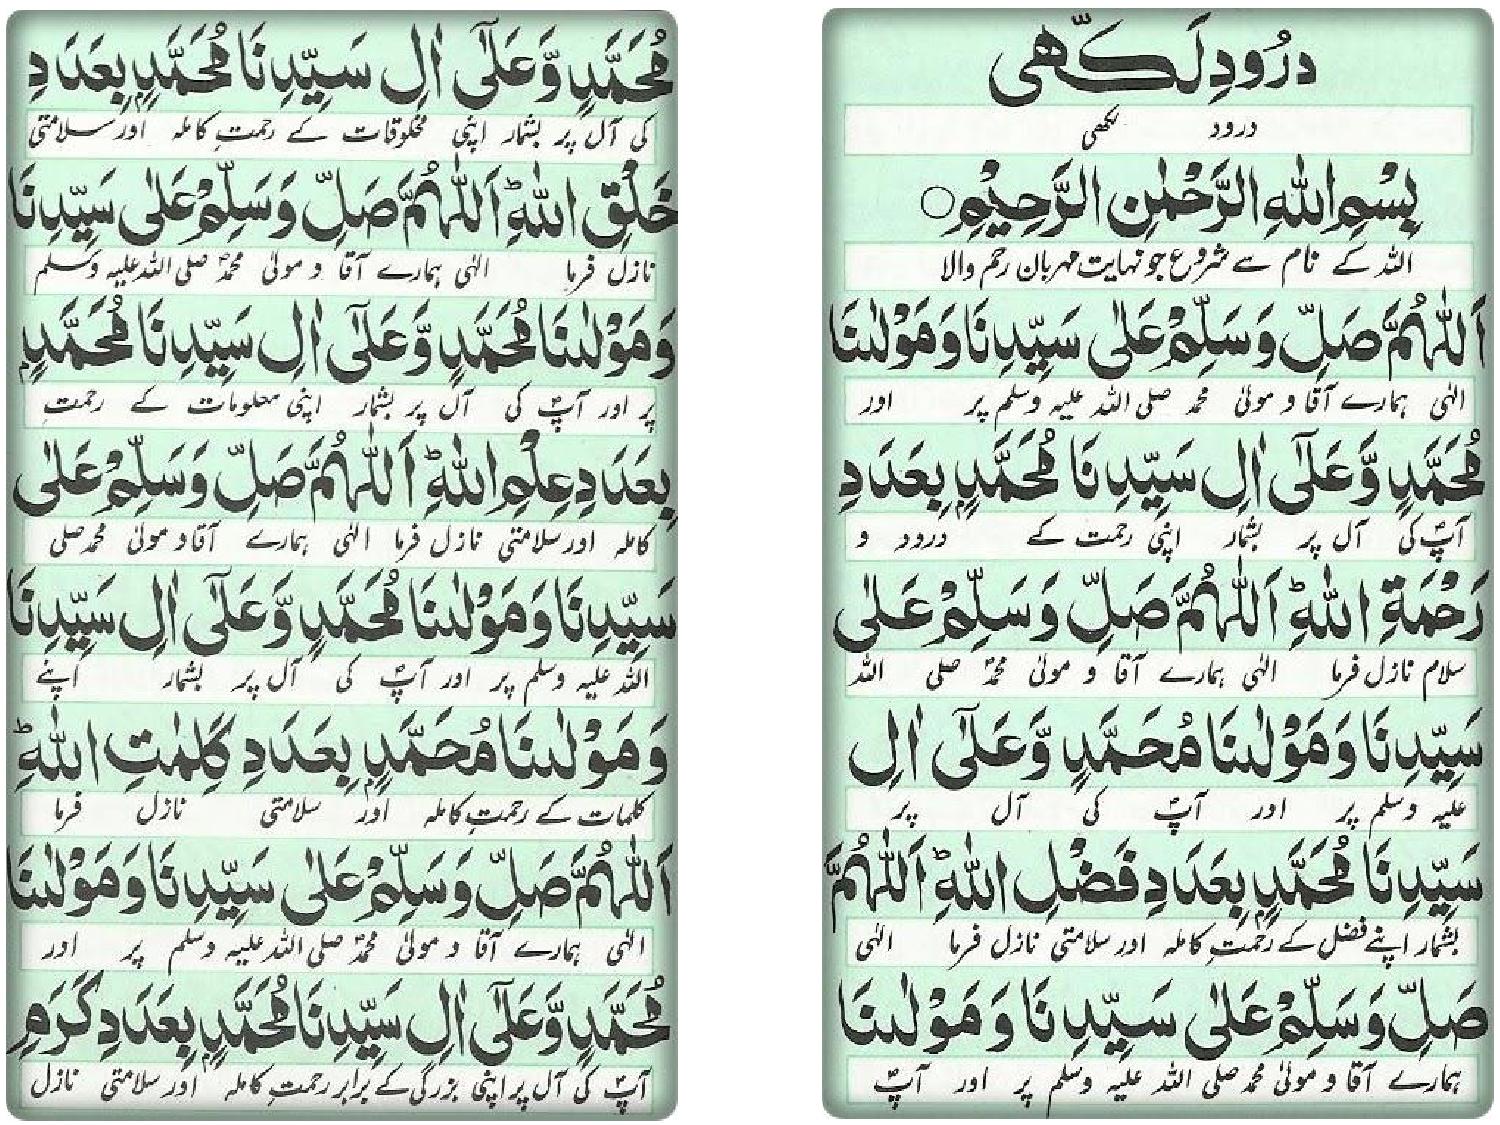 دُرُودِ لَكّھی
درود لکھی
بِسْمِ اللهِ الرَّحْمٰنِ الرَّحِیْمِ○
اللہ کے نام سے شروع جو نہایت مہربان رحم والا
اَللّٰهُمَّ صَلِّ وَسَلِّمْ عَلٰی سَیِّدِنَا وَمَوْلٰىنَا
الٰہی ہمارے آقا و مولیٰ محمد صلی اللہ علیہ وسلم پر اور
مُحَمَّدٍ وَّعَلٰۤی اٰلِ سَیِّدِنَا مُحَمَّدٍۭ بِعَدَدِ
آپؐ کی آل پر بشمار اپنی رحمت کے درود و
رَحْمَةِ اللهِؕ اَللّٰهُمَّ صَلِّ وَسَلِّمْ عَلٰی
سلام نازل فرما الٰہی ہمارے آقا و مولیٰ محمدؐ صلی اللہ
سَیِّدِنَا وَمَوْلٰىنَا مُحَمَّدٍ وَّعَلٰۤی اٰلِ
علیہ وسلم پر اور آپؐ کی آل پر
سَیِّدِنَا مُحَمَّدٍۭ بِعَدَدِ فَضْلِ اللهِؕ اَللّٰهُمَّ
بشمار اپنے فضل کے رحمتِ کاملہ اور سلامتی نازل فرما الٰہی
صَلِّ وَسَلِّمْ عَلٰی سَیِّدِنَا وَمَوْلٰىنَا
ہمارے آقا و مولیٰ محمد صلی اللہ علیہ وسلم پر اور آپؐ
مُحَمَّدٍ وَّعَلٰۤی اٰلِ سَیِّدِنَا مُحَمَّدٍۭ بِعَدَدِ
کی آل پر بشمار اپنی مخلوقات کے رحمتِ کاملہ اور سلامتی
خَلْقِ اللهِؕ اَللّٰهُمَّ صَلِّ وَسَلِّمْ عَلٰی سَیِّدِنَا
نازل فرما الٰہی ہمارے آقا و مولیٰ محمدؐ صلی اللہ علیہ وسلم
وَمَوْلٰىنَا مُحَمَّدٍ وَّعَلٰۤی اٰلِ سَیِّدِنَا مُحَمَّدٍۭ
پر اور آپؐ کی آل پر بشمار اپنی معلومات کے رحمتِ
بِعَدَدِ عِلْمِ اللهِؕ اَللّٰهُمَّ صَلِّ وَسَلِّمْ عَلٰی
کاملہ اور سلامتی نازل فرما الٰہی ہمارے آقا و مولیٰ محمد صلی
سَیِّدِنَا وَمَوْلٰىنَا مُحَمَّدٍ وَّعَلٰۤی اٰلِ سَیِّدِنَا
اللہ علیہ وسلم پر اور آپؐ کی آل پر بشمار اپنے
وَمَوْلٰىنَا مُحَمَّدٍۭ بِعَدَدِ کَلِمٰتِ اللهِؕ
کلمات کے رحمتِ کاملہ اور سلامتی نازل فرما
اَللّٰهُمَّ صَلِّ وَسَلِّمْ عَلٰی سَیِّدِنَا وَمَوْلٰىنَا
الٰہی ہمارے آقا و مولیٰ محمدؐ صلی اللہ علیہ وسلم پر اور
مُحَمَّدٍ وَّعَلٰۤی اٰلِ سَیِّدِنَا مُحَمَّدٍۭ بِعَدَدِ کَرَمِ
آپؐ کی آل پر اپنی بزرگی کے برابر رحمتِ کاملہ اور سلامتی نازل